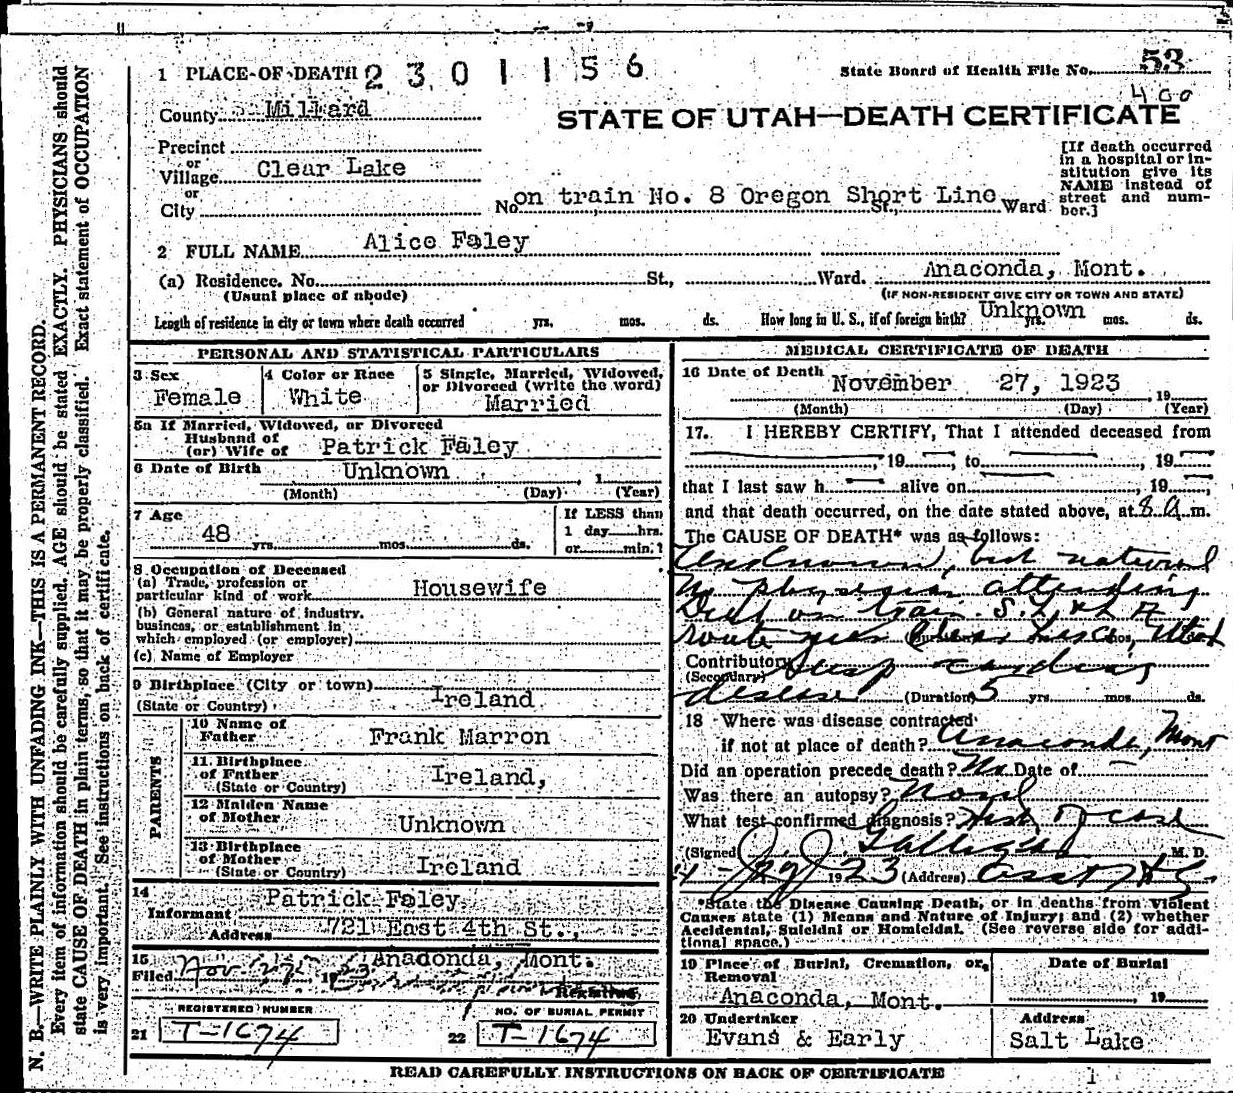 1 PLACE OF DEATH 2 3 0 1 1 5 6
State Board of Health File No. 53
400
County Millard
STATE OF UTAH—DEATH CERTIFICATE
Precinct
or
Village Clear Lake
or
City
No. on train No. 8 Oregon Short Line St., Ward
[If death occurred
in a hospital or in-
stitution give its
NAME instead of
street and num-
ber.]
2 FULL NAME Alice Faley
(a) Residence. No. St., Ward. Anaconda, Mont.
(Usual place of abode)
(IF NON-RESIDENT GIVE CITY OR TOWN AND STATE)
Length of residence in city or town where death occurred yrs. mos. ds. How long in U. S., if of foreign birth? Unknown yrs. mos. ds.
PERSONAL AND STATISTICAL PARTICULARS
3 Sex
Female
4 Color or Race
White
5 Single, Married, Widowed,
or Divorced (write the word)
Married
5a If Married, Widowed, or Divorced
Husband of
(or) Wife of Patrick Faley
6 Date of Birth Unknown , 1
(Month) (Day) (Year)
7 Age
48 yrs. mos. ds.
If LESS than
1 day hrs.
or min. ?
8 Occupation of Deceased
(a) Trade, profession or
particular kind of work Housewife
(b) General nature of industry,
business, or establishment in
which employed (or employer)
(c) Name of Employer
9 Birthplace (City or town)
(State or Country) Ireland
PARENTS
10 Name of
Father Frank Marron
11 Birthplace
of Father Ireland,
(State or Country)
12 Maiden Name
of Mother Unknown
13 Birthplace
of Mother
(State or Country) Ireland
14
Informant Patrick Faley
Address 721 East 4th St.,
Anadonda, Mont.
15
Filed Nov. 1923
Registrar
REGISTERED NUMBER
21 T-1674
NO. OF BURIAL PERMIT
22 T-1674
MEDICAL CERTIFICATE OF DEATH
16 Date of Death November 27, 1923 , 19
(Month) (Day) (Year)
17. I HEREBY CERTIFY, That I attended deceased from
, 19 , to , 19 ,
that I last saw h alive on , 19 ,
and that death occurred, on the date stated above, at 8 A m.
The CAUSE OF DEATH* was as follows:
Unknown, but natural
No physician attending
Died on train S. L. & L A
route near Clear Lake, Utah
Contributory
(Secondary) cardiac
disease (Duration) 5 yrs. mos. ds.
18 Where was disease contracted
if not at place of death? Anaconda, Mont
Did an operation precede death? No Date of
Was there an autopsy? None
What test confirmed diagnosis?
(Signed) M. D.
1923 (Address)
*State the Disease Causing Death, or in deaths from Violent
Causes state (1) Means and Nature of Injury; and (2) whether
Accidental, Suicidal or Homicidal. (See reverse side for addi-
tional space.)
19 Place of Burial, Cremation, or
Removal
Anaconda, Mont.
Date of Burial
, 19
20 Undertaker
Evans & Early
Address
Salt Lake
READ CAREFULLY INSTRUCTIONS ON BACK OF CERTIFICATE
1
N. B.—WRITE PLAINLY WITH UNFADING INK—THIS IS A PERMANENT RECORD.
Every item of information should be carefully supplied. AGE should be stated EXACTLY. PHYSICIANS should
state CAUSE OF DEATH in plain terms, so that it may be properly classified. Exact statement of OCCUPATION
is very important. See instructions on back of certificate.